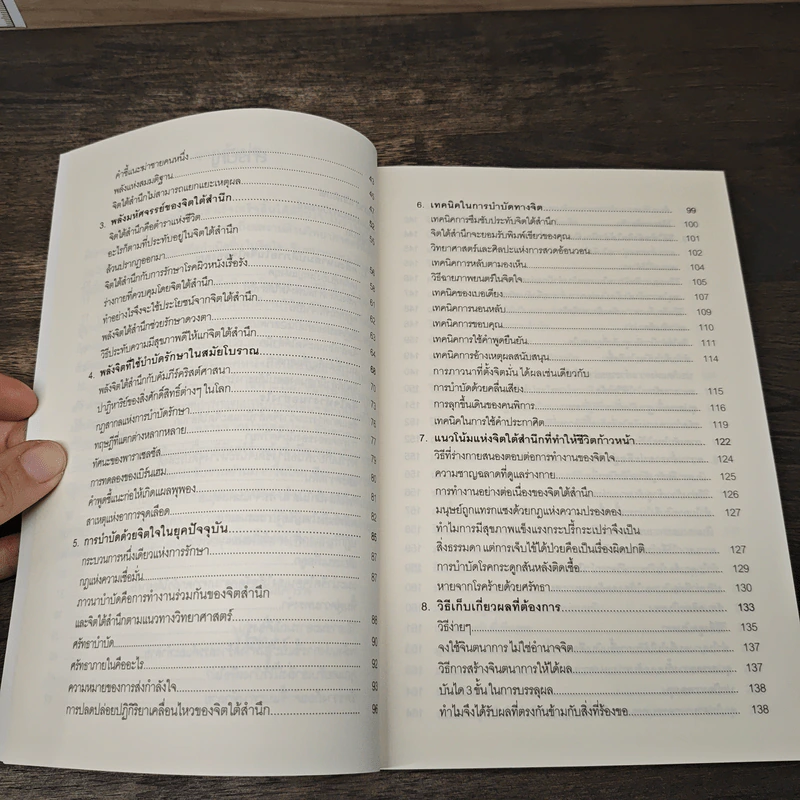 คำชี้แนะฆ่าชายคนหนึ่ง
พลังแห่งสมมติฐาน
จิตใต้สำนึกไม่สามารถแยกแยะเหตุผล
3. พลังมหัศจรรย์ของจิตใต้สำนึก
จิตใต้สำนึกคือตำราแห่งชีวิต
อะไรก็ตามที่ประทับอยู่ในจิตใต้สำนึก
ล้วนปรากฏออกมา
จิตใต้สำนึกกับการรักษาโรคผิวหนังเรื้อรัง
ร่างกายที่ควบคุมโดยจิตใต้สำนึก
ทำอย่างไรจึงจะใช้ประโยชน์จากจิตใต้สำนึก
พลังจิตใต้สำนึกช่วยรักษาดวงตา
วิธีประทับความมีสุขภาพดีให้แก่จิตใต้สำนึก
4. พลังจิตที่ใช้บำบัดรักษาในสมัยโบราณ 68
พลังจิตใต้สำนึกกับคัมภีร์คริสต์ศาสนา 70
ปาฏิหาริย์ของสิ่งศักดิ์สิทธิ์ต่างๆ ในโลก 73
กฎสากลแห่งการบำบัดรักษา
ทฤษฎีที่แตกต่างหลากหลาย 77
ทัศนะของพาราเซลซัส 79
การทดลองของเบิร์นเฮม 80
คำพูดชี้แนะก่อให้เกิดแผลพุพอง 81
สาเหตุแห่งอาการจุดเลือด 82
5. การบำบัดด้วยจิตใจในยุคปัจจุบัน 85
กระบวนการหนึ่งเดียวแห่งการรักษา 87
กฎแห่งความเชื่อมั่น 87
ภาวนาบำบัดคือการทำงานร่วมกันของจิตสำนึก
และจิตใต้สำนึกตามแนวทางวิทยาศาสตร์ 88
ศรัทธาบำบัด 90
ศรัทธาภายในคืออะไร 92
ความหมายของการส่งกำลังใจ 93
การปลดปล่อยปฏิกิริยาเคลื่อนไหวของจิตใต้สำนึก 96
6. เทคนิคในการบำบัดทางจิต 99
เทคนิคการซึมซับประทับจิตใต้สำนึก 100
จิตใต้สำนึกจะยอมรับพิมพ์เขียวของคุณ 101
วิทยาศาสตร์และศิลปะแห่งการสวดอ้อนวอน 102
เทคนิคการหลับตามองเห็น 104
วิธีฉายภาพยนตร์ในจิตใจ 105
เทคนิคของเบอเดียง 107
เทคนิคการนอนหลับ 109
เทคนิคการขอบคุณ 110
เทคนิคการใช้คำพูดยืนยัน 111
เทคนิคการอ้างเหตุผลสนับสนุน 114
การภาวนาที่ตั้งจิตมั่น ได้ผลเช่นเดียวกับ
การบำบัดด้วยคลื่นเสียง 115
การลุกขึ้นเดินของคนพิการ 116
เทคนิคในการใช้คำประกาศิต 119
7. แนวโน้มแห่งจิตใต้สำนึกที่ทำให้ชีวิตก้าวหน้า 122
วิธีที่ร่างกายสนองตอบต่อการทำงานของจิตใจ 124
ความชาญฉลาดที่ดูแลร่างกาย 125
การทำงานอย่างต่อเนื่องของจิตใต้สำนึก 126
มนุษย์ถูกแทรกแซงด้วยกฎแห่งความปรองดอง 127
ทำไมการมีสุขภาพแข็งแรงกระปรี้กระเปร่าจึงเป็น
สิ่งธรรมดา แต่การเจ็บไข้ได้ป่วยคือเป็นเรื่องผิดปกติ 127
การบำบัดโรคกระดูกสันหลังติดเชื้อ 129
หายจากโรคร้ายด้วยศรัทธา 130
8. วิธีเก็บเกี่ยวผลที่ต้องการ 133
วิธีง่ายๆ 135
จงใช้จินตนาการ ไม่ใช่อำนาจจิต 137
วิธีการสร้างจินตนาการให้ได้ผล 137
บันได 3 ขั้น ในการบรรลุผล 138
ทำไมจึงได้รับผลที่ตรงกันข้ามกับสิ่งที่ร้องขอ 138